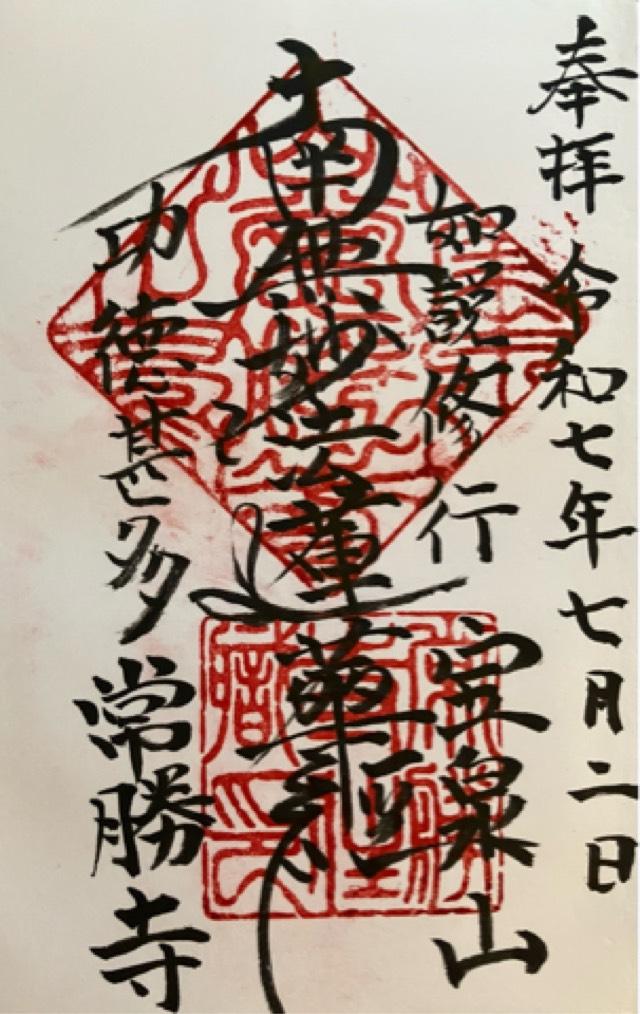 奉拝 令和七年七月二日
如説修行
宝泉山
南無妙法蓮華経
功徳甚多
常勝寺